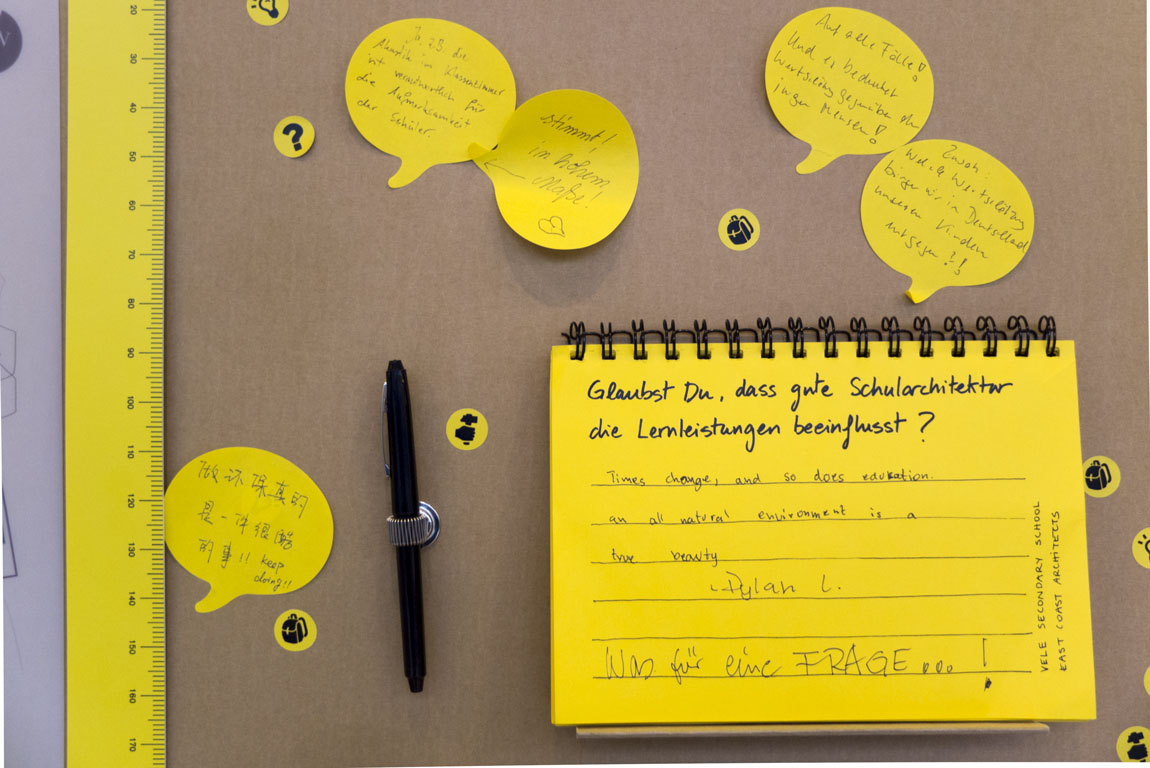 Ja, z.B. die
Akustik im Klassenzimmer
ist verantwortlich für
die Aufmerksamkeit
der Schüler.
stimmt!
in hohem
Maße!
Auf alle Fälle!
Und es bedeutet
Wertschätzung gegenüber den
jungen Menschen!
Wertschätzung
wir in Deutschland
unseren Kindern
entgegen?!
?
Glaubst Du, dass gute Schularchitektur
die Lernleistungen beeinflusst?
Times change, and so does edukation.
an all natural environment is a
true beauty
-Dylan L.
Was für eine FRAGE...!
VELE SECONDARY SCHOOL
EAST COAST ARCHITECTS
做环保真的
是一件很酷
的事!! keep
doing!!
20
30
40
50
60
70
80
90
100
110
120
130
140
150
160
170